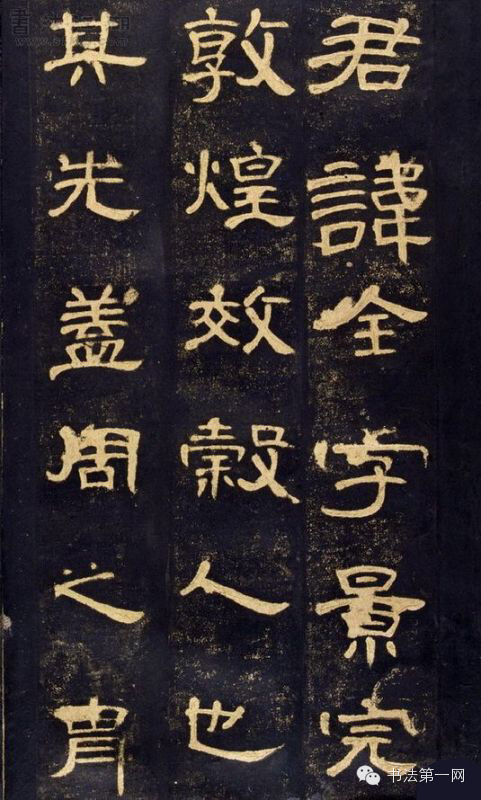 君諱全字景完
敦煌效穀人也
其先蓋周之胄
书法第一网